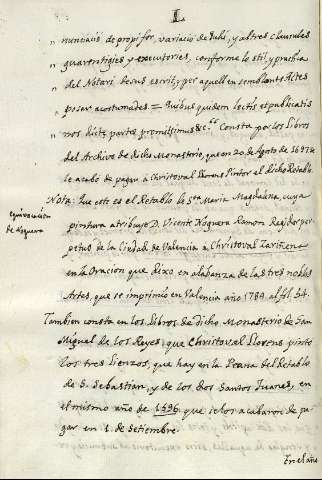 L
" nunciació de propi for, variació de Juhi, y altres clausules
" guarentigies y executories, conforme lo stil, y practica
" del Notari desus escrit, y per aquell en semblants Actes
" posar acostumades = Quibus quidem lectis et publicatis
" nos dicte partes promittimus &c. Consta por los Libros
del Archivo de dicho Monasterio, que en 20 de Agosto de 1597 se
le acabó de pagar a Christoval Llorens Pintor el dicho Retablo.
Nota: Que este es el Retablo de Sta. Maria Magdalena, cuya
equivocación
de Noguera
pintura atribuyó D. Vicente Noguera Ramon Regidor per-
petuo de la Ciudad de Valencia a Christoval Zariñena
en la Oracion que dixo en alabanza de las tres nobles
Artes, que se imprimió en Valencia año 1784 al fol. 54.
Tambien consta en los Libros de dicho Monasterio de San
Miguel de los Reyes, que Christoval Llorens pintó
los tres Lienzos, que hay en la Peana del Retablo
de S. Sebastian, y de los dos Santos Juanes, en
el mismo año de 1596 que se los acabaron de pa-
gar en 1. de Setiembre.
En el año